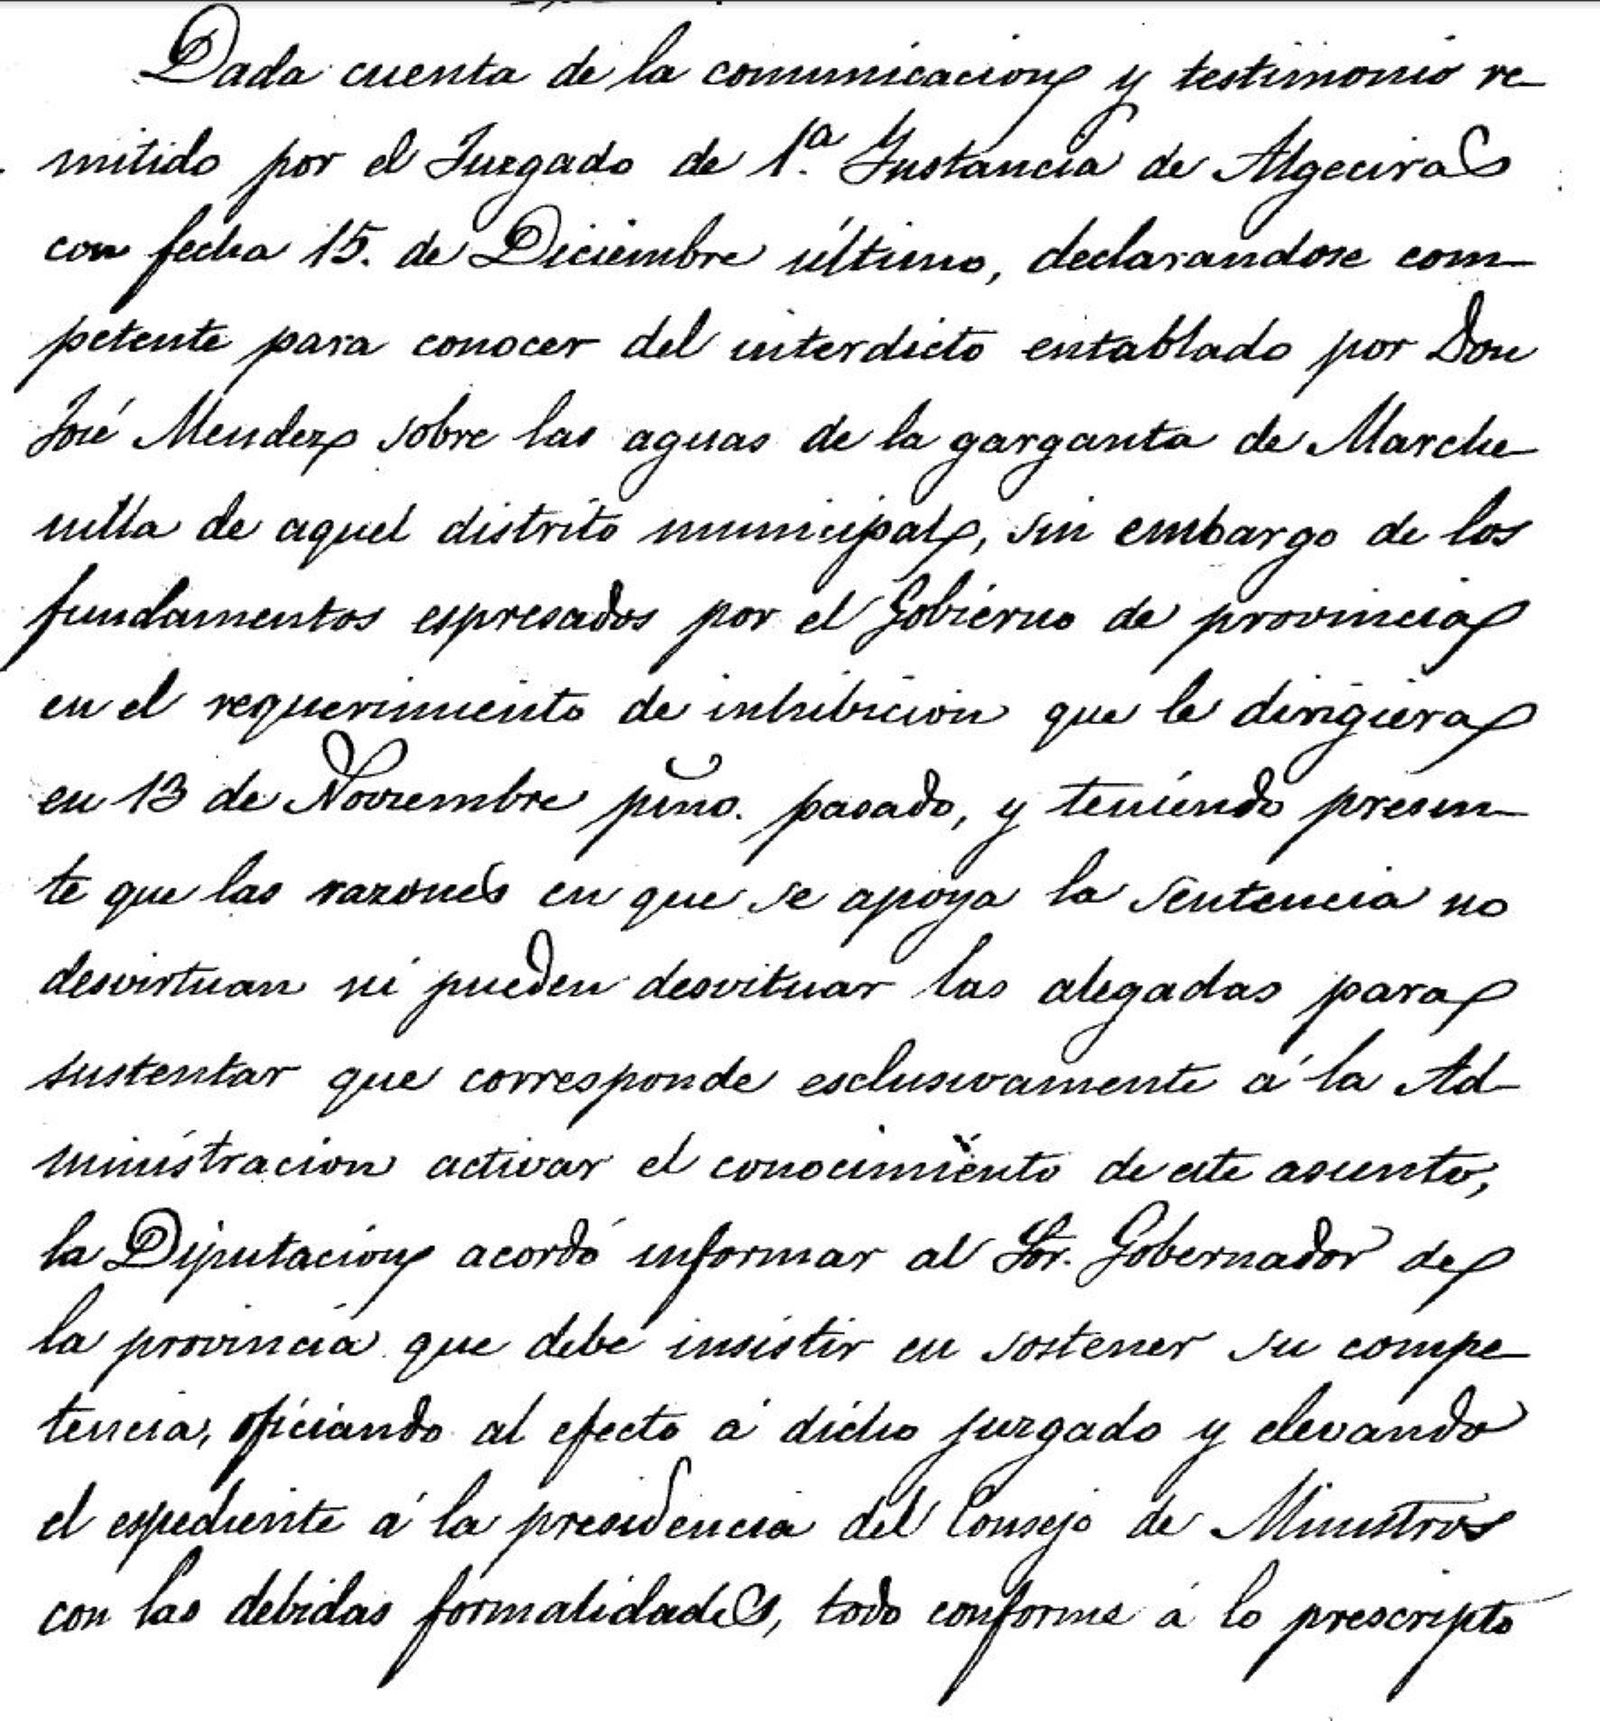 Dada cuenta de la comunicacion y testimonio re-
mitido por el Juzgado de 1.ª Instancia de Algeciras
con fecha 15. de Diciembre último, declarandose com-
petente para conocer del interdicto entablado por Don
José Mendez sobre las aguas de la garganta de Marche-
nilla de aquel distrito municipal, sin embargo de los
fundamentos espresados por el Gobierno de provincia
en el requerimiento de inhibicion que le dirigiera
en 13 de Noviembre pmo. pasado, y teniendo presen-
te que las razones en que se apoya la sentencia no
desvirtuan ni pueden desvituar las alegadas para
sustentar que corresponde esclusivamente á la Ad-
ministracion activar el conocimiento de este asunto,
la Diputacion acordó informar al Sor. Gobernador de
la provincia que debe insistir en sostener su compe-
tencia, oficiando al efecto á dicho juzgado y elevando
el espediente á la presidencia del Consejo de Ministros
con las debidas formalidades, todo conforme á lo prescripto